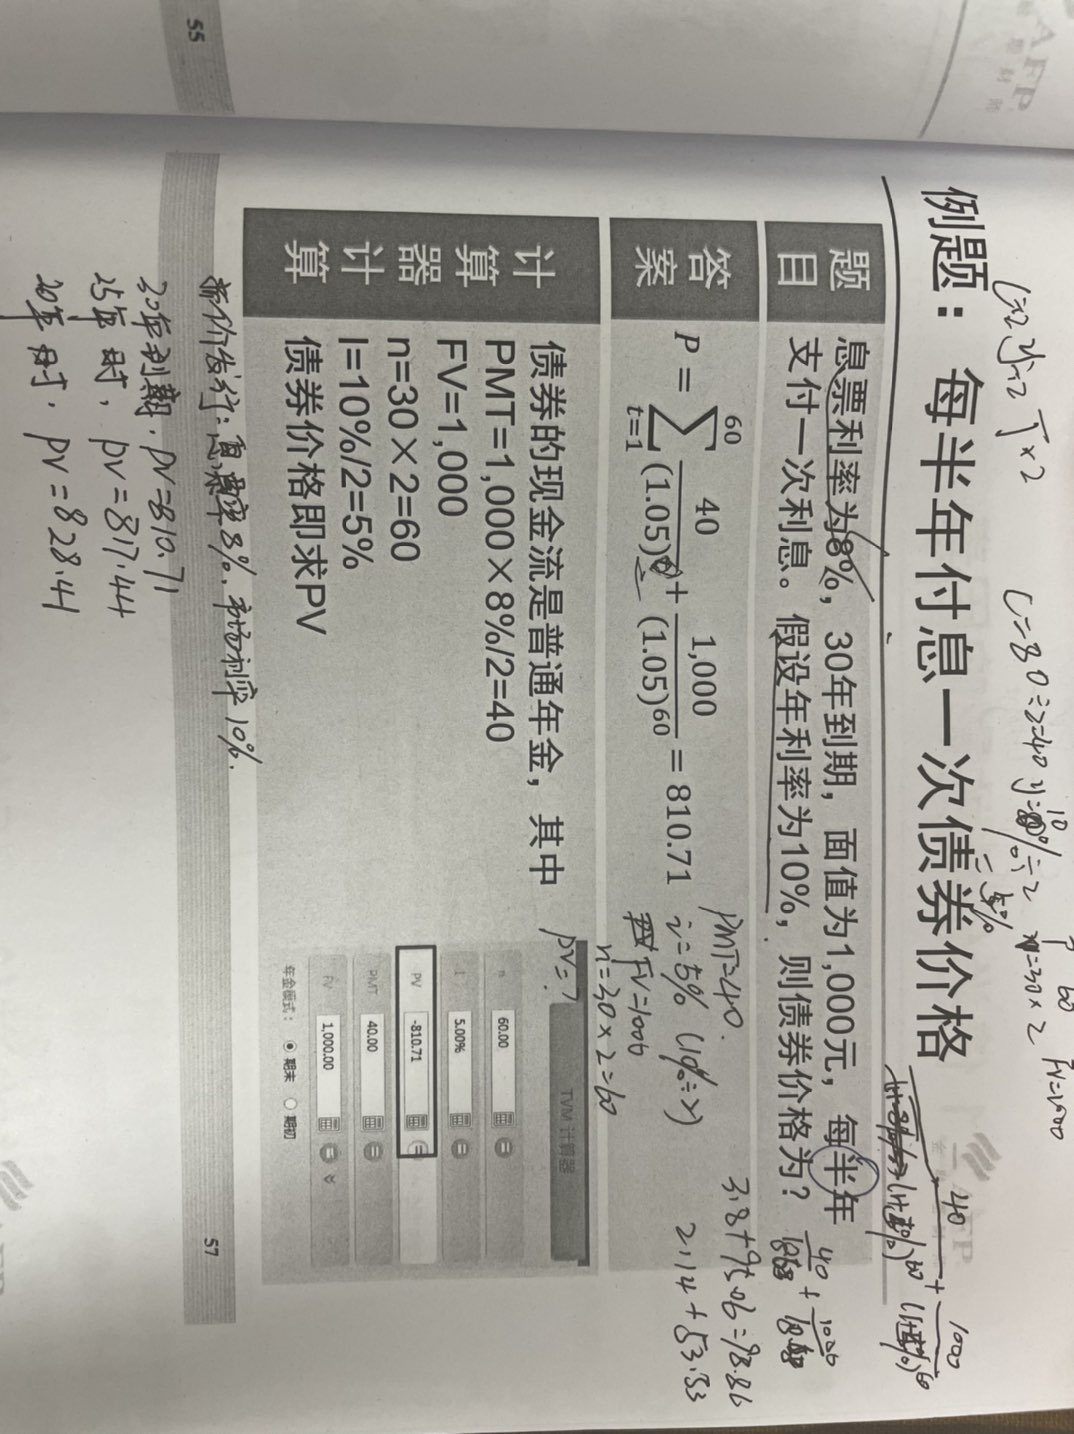 例题：每半年付息一次债券价格
C÷2 y÷2 T×2
C=80÷2=40 y=10%÷2=5% n=30×2 FV=1000
题目
息票利率为8%，30年到期，面值为1,000元，每半年
支付一次利息。假设年利率为10%，则债券价格为？
答案
P = ∑ 60 t=1 40/(1.05) + 1,000/(1.05)^60 = 810.71
PMT=40.
i=5% (10%÷2)
FV=1000
n=30×2=60
PV=?
3.8+95.06=98.86
2.14+53.53
计算器计算
债券的现金流是普通年金，其中
PMT=1,000×8%/2=40
FV=1,000
n=30×2=60
I=10%/2=5%
债券价格即求PV
TVM 计算器
n 60.00
I 5.00%
PV -810.71
PMT 40.00
FV 1,000.00
年金模式： 期末 期初
折价发行：票率8%. 市场利率10%.
30年到期，PV=810.71
25年时，PV=817.44
20年时，PV=828.41
55
57